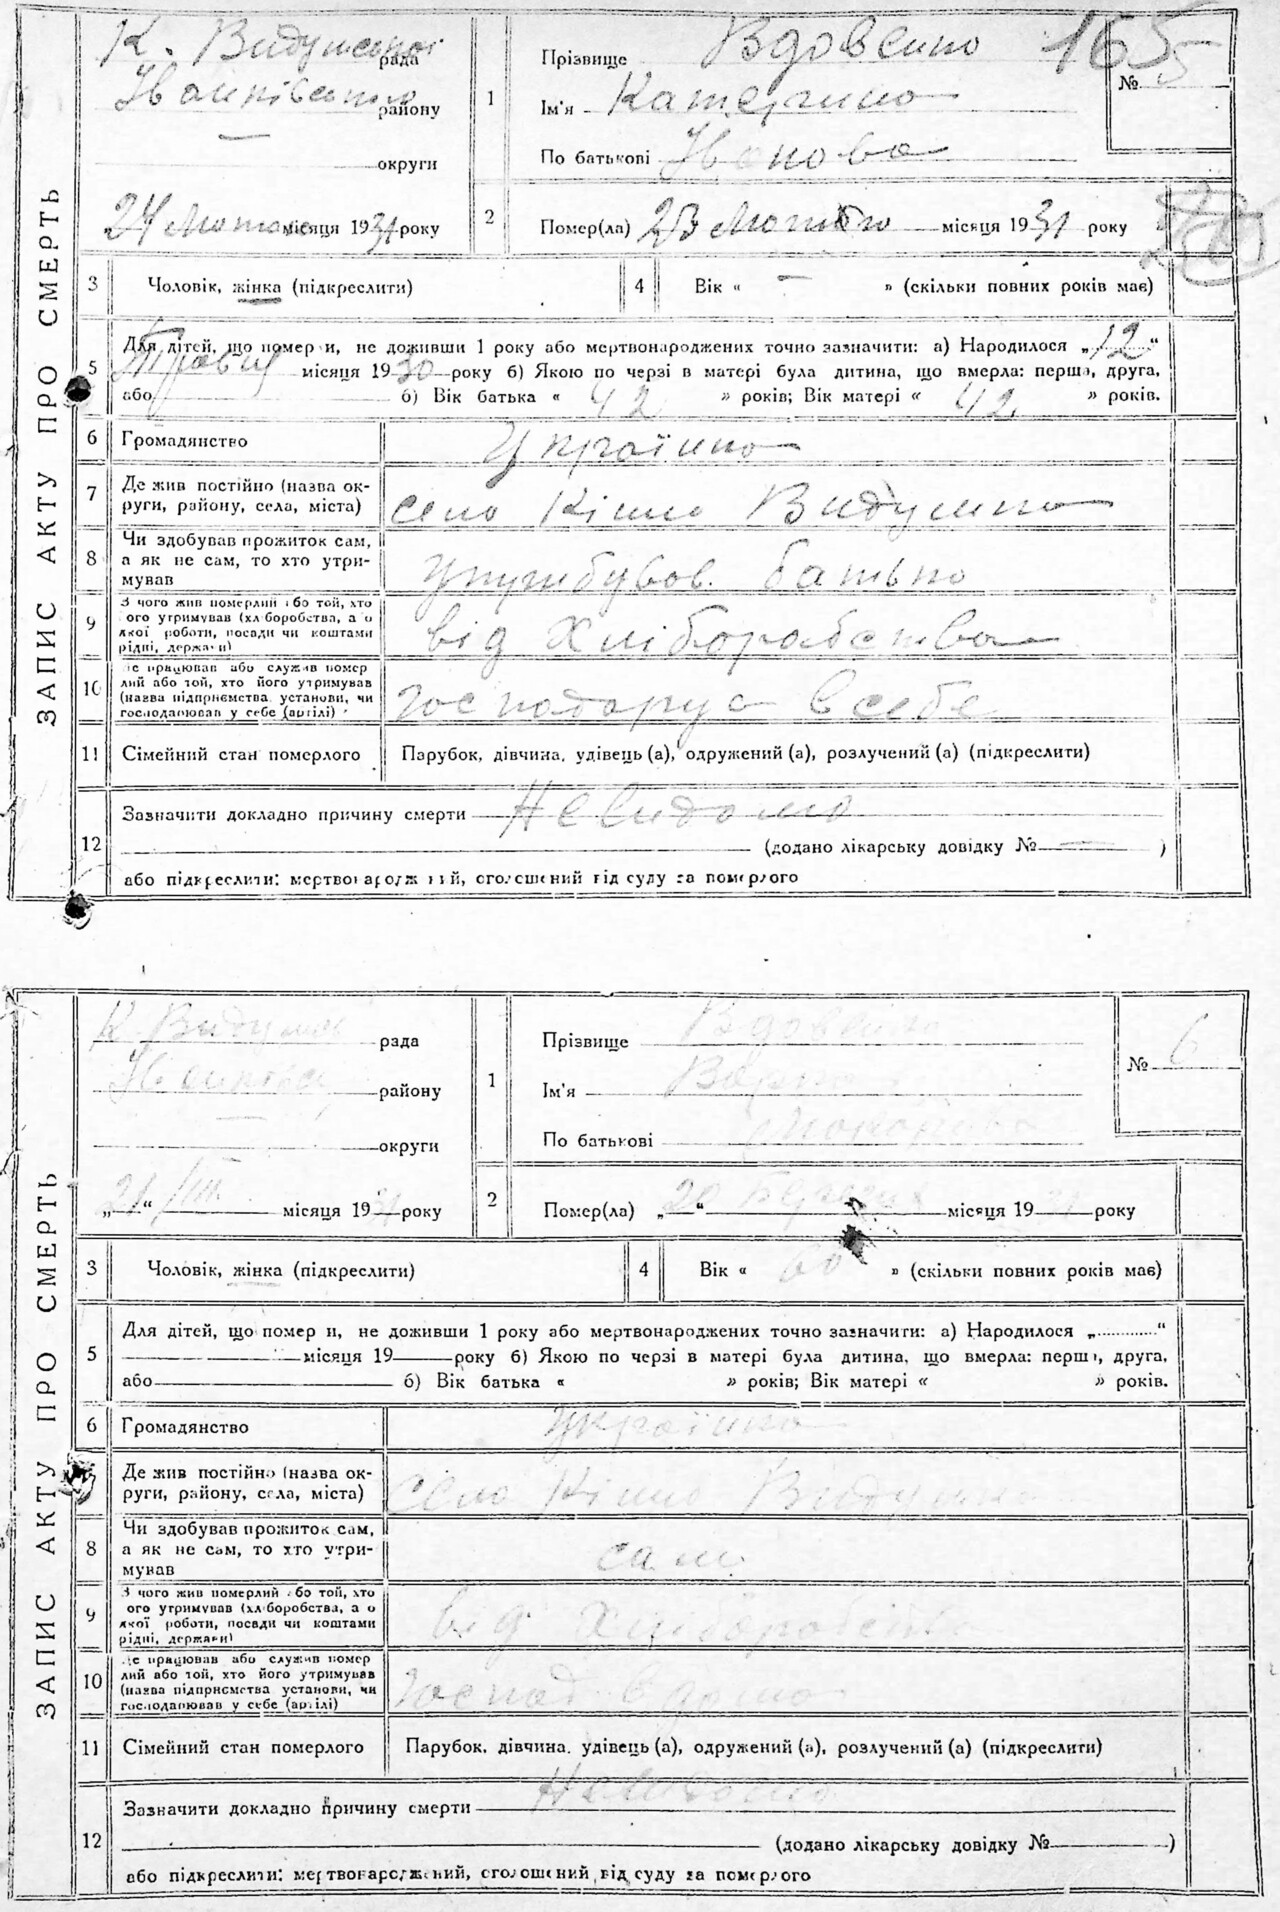 ЗАПИС АКТУ ПРО СМЕРТЬ
К. Видумської рада
Іванківського району
— округи
24 Лютого місяця 1931 року
1
Прізвище Вдовенко
Ім'я Катерина
По батькові Іванова
165
№ 5
2
Помер(ла) 23 Лютого місяця 1931 року
3 Чоловік, жінка (підкреслити)
4 Вік « — » (скільки повних років має)
5 Для дітей, що померли, не доживши 1 року або мертвонароджених точно зазначити: а) Народилося „12“
Травня місяця 1930 року б) Якою по черзі в матері була дитина, що вмерла: перша, друга,
або б) Вік батька « 42 » років; Вік матері « 42 » років.
6 Громадянство Україна
7 Де жив постійно (назва округи, району, села, міста) село Кішло Видумка
8 Чи здобував прожиток сам,
а як не сам, то хто утримував батько
9 З чого жив померлий або той, хто
його утримував (хліборобства, а о
якої роботи, посади чи коштами
рідні, держави) від Хліборобства
10 Де працював або служив помер
лий або той, хто його утримував
(назва підприємства установи, чи
господарював у себе (артілі) Господарує в себе
11 Сімейний стан померлого Парубок, дівчина, удівець (а), одружений (а), розлучений (а) (підкреслити)
12 Зазначити докладно причину смерти Невидомо
(додано лікарську довідку № — )
або підкреслити: мертвонароджений, оголошений від суду за померлого
ЗАПИС АКТУ ПРО СМЕРТЬ
К. Видумс рада
Іванківс району
— округи
„21“ /III місяця 1931 року
1
Прізвище Вдовенко
Ім'я Варка
По батькові
№ 6
2
Помер(ла) „20“ Березня місяця 1931 року
3 Чоловік, жінка (підкреслити)
4 Вік « 60 » (скільки повних років має)
5 Для дітей, що померли, не доживши 1 року або мертвонароджених точно зазначити: а) Народилося „ “
місяця 19 року б) Якою по черзі в матері була дитина, що вмерла: перша, друга,
або б) Вік батька « » років; Вік матері « » років.
6 Громадянство Україна
7 Де жив постійно (назва округи, району, села, міста) село Кішло Видумка
8 Чи здобував прожиток сам,
а як не сам, то хто утримував сам
9 З чого жив померлий або той, хто
його утримував (хліборобства, а о
якої роботи, посади чи коштами
рідні, держави) від Хліборобства
10 Де працював або служив помер
лий або той, хто його утримував
(назва підприємства установи, чи
господарював у себе (артілі) Господ в дома
11 Сімейний стан померлого Парубок, дівчина, удівець (а), одружений (а), розлучений (а) (підкреслити)
12 Зазначити докладно причину смерти Невидомо
(додано лікарську довідку № )
або підкреслити: мертвонароджений, оголошений від суду за померлого